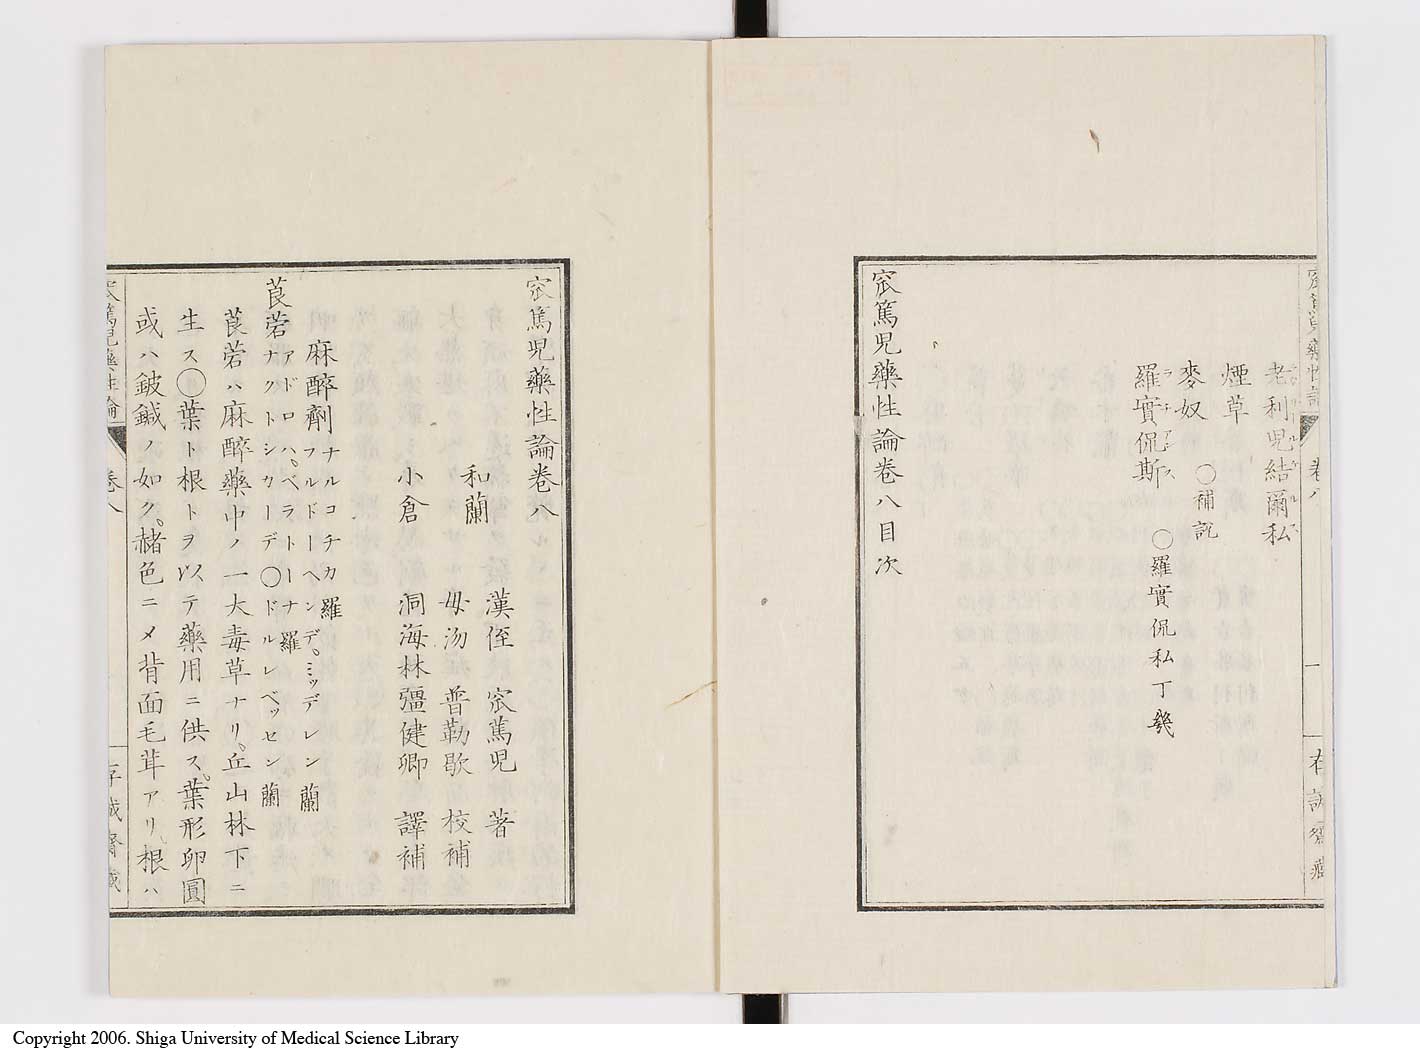 老利児結爾私
煙草
麥奴 ○補訖
羅實侃斯 ○羅實侃私丁幾
窊篤児藥性論巻八目次
窊篤児藥性論巻八
和蘭 漢侄 窊篤児 著
毋汤 普勒歇 校補
小倉 洞海林彊健卿 譯補
麻醉劑 ナルコチカ 羅 フルドーヘンデ。ミッデレン 蘭
莨菪 アドロハ。ベラトーナ 羅 ナクトシカーデ○ドルレベッセン 蘭
莨菪ハ麻醉藥中ノ一大毒草ナリ。丘山林下ニ
生ス○葉ト根トヲ以テ藥用ニ供ス。葉形卵圓
或ハ鈹鍼ノ如ク。赭色ニメ背面毛茸アリ、根ハ
巻八
存誠齋蔵
Copyright 2006. Shiga University of Medical Science Library